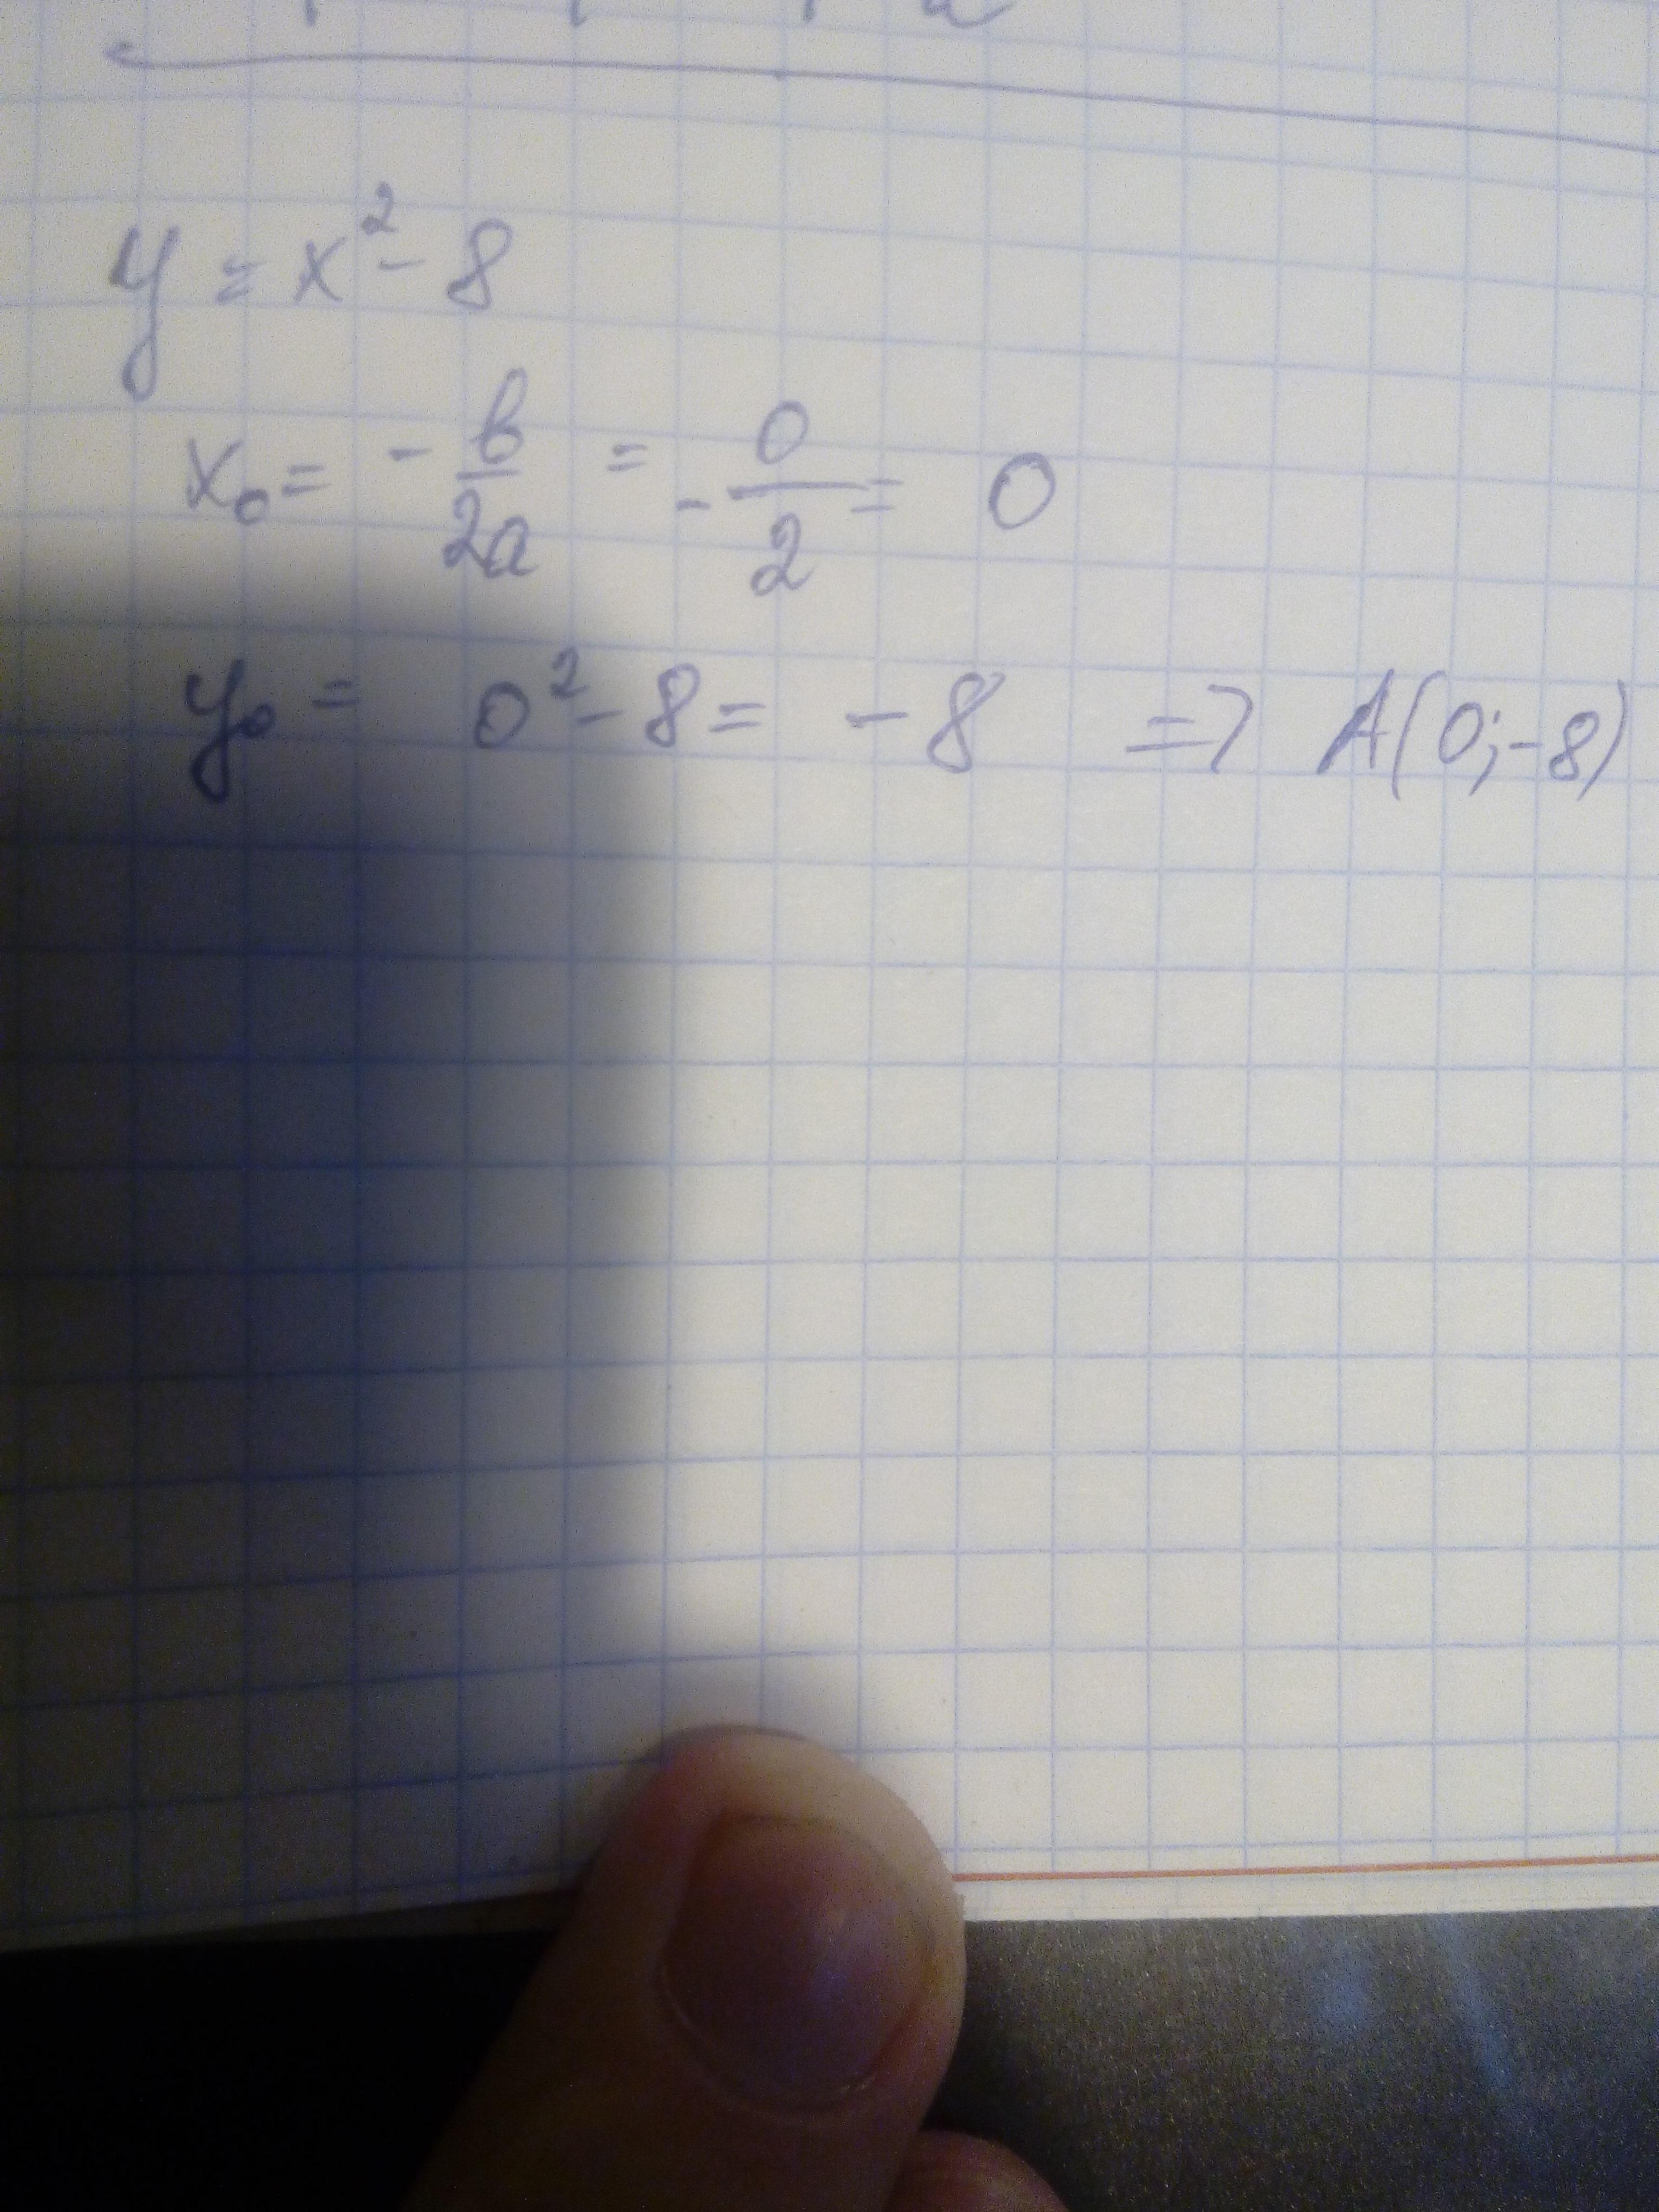 y = x² - 8
x₀ = - b/2a = - 0/2 = 0
y₀ = 0² - 8 = - 8 => A(0; -8)